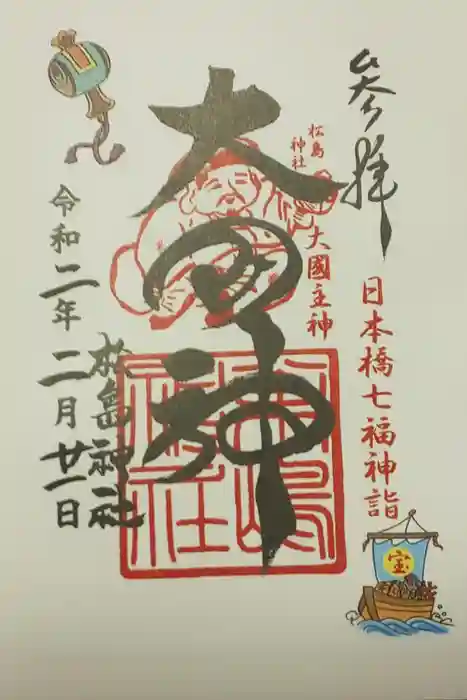 参拝
日本橋七福神詣
宝
松島
神社
大國主神
大国神
松嶋
神社
松島神社
令和二年二月廿一日